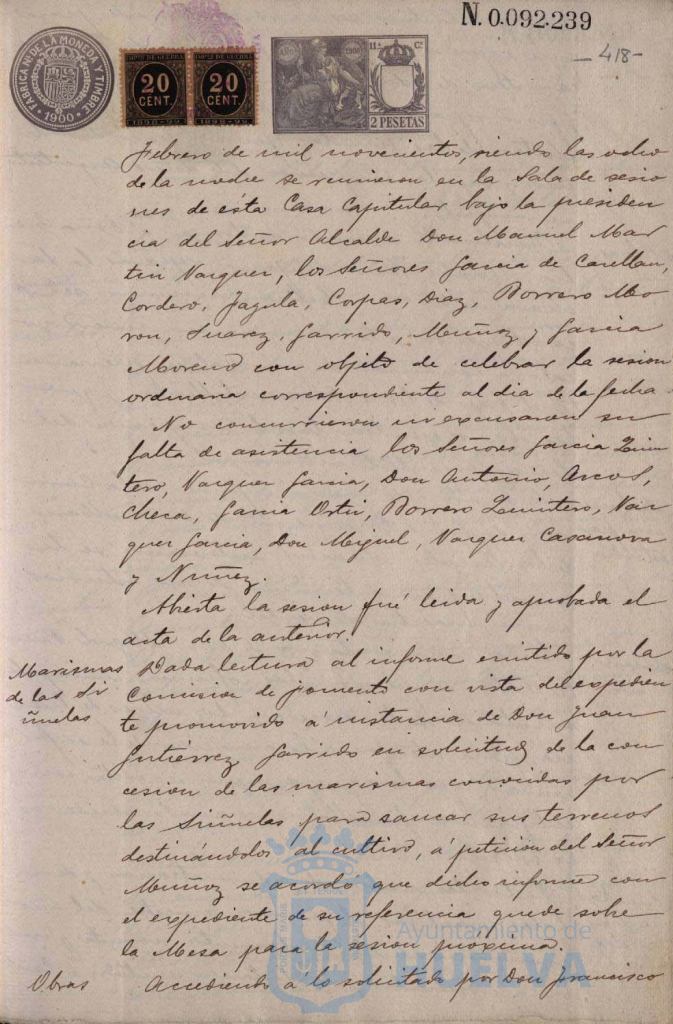 N. 0.092.239
-418-
FABRICA NAL DE LA MONEDA Y TIMBRE
· 1900 ·
IMPTO DE GUERRA
20
CENT.
1898-99
IMPTO DE GUERRA
20
CENT.
1898-99
AÑO 1900
11ª Cª
2 PESETAS
Febrero de mil novecientos, siendo las ocho
de la noche se reunieron en la Sala de sesio
nes de ésta Casa Capitular bajo la presiden
cia del Señor Alcalde Don Manuel Mar
tin Vazquez, los Señores Garcia de Casellan,
Cordero, Jagula, Corpas, Diaz, Borrero Mo
ron, Suarez, Garrido, Muñoz y Garcia
Moreno con objeto de celebrar la sesion
ordinaria correspondiente al dia de la fecha.
No concurrieron ni excusaron su
falta de asistencia los Señores Garcia Quin
tero, Vazquez Garcia, Don Antonio, Arcos,
Checa, Garcia Ortiz, Borrero Quintero, Vaz
quez Garcia, Don Miguel, Vazquez Casanova
y Nuñez.
Abierta la sesion fué leida y aprobada el
acta de la anterior.
Marismas
de las Si
ñuelas
Dada lectura al informe emitido por la
Comision de fomento con vista del expedien
te promovido á instancia de Don Juan
Gutiérrez Garrido en solicitud de la con
cesion de las marismas conocidas por
las Siñuelas para sanear sus terrenos
destinándolos al cultivo, á peticion del Señor
Muñoz se acordó que dicho informe con
el expediente de su referencia quede sobre
la Mesa para la sesion próxima.
Obras
Accediendo á lo solicitado por Don Francisco
Ayuntamiento de
HUELVA